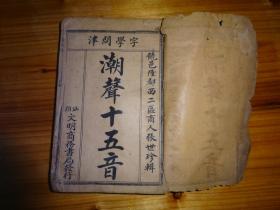 字學關津
饒邑隆都西二區商人張世珍輯
潮聲十五音
汕頭文明商務書局發行